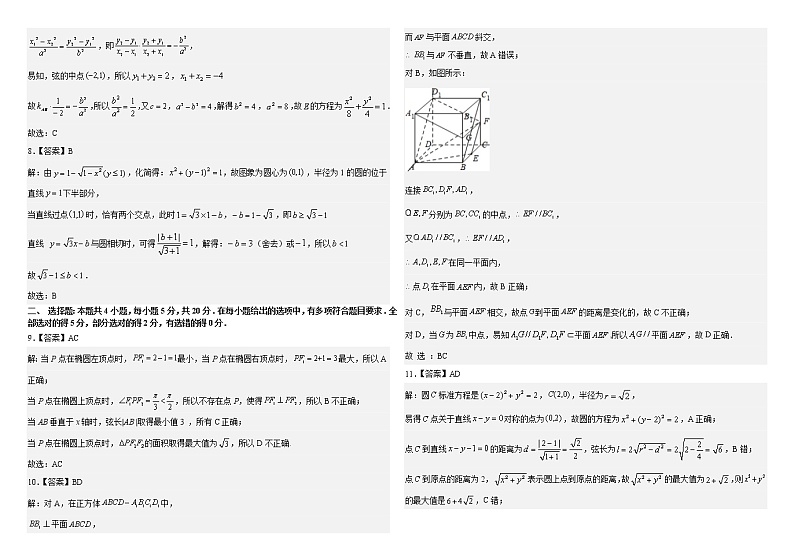 (x₁²−x₂²)/a² = (y₁²−y₂²)/b²，即 (y₁−y₂)/(x₁−x₂)·(y₁+y₂)/(x₁+x₂)=−b²/a²，
易知，弦的中点(−2,1)，所以y₁+y₂=2，x₁+x₂=−4
故k_AB·1/−2=−b²/a²,所以b²/a²=1/2,又c=2，a²-b²=4,解得b²=4，a²=8,故E的方程为x²/8+y²/4=1.
故选：C
8.【答案】B
解：由y=1−√(1−x²)(y≤1)，化简得：x²+(y−1)²=1，故图象为圆心为(0,1)，半径为1的圆的位于
直线y=1下半部分，
当直线过点(1,1)时，恰有两个交点，此时1=√3×1−b，−b=1−√3，即b≥√3−1
直线 y=√3x−b与圆相切时，可得|b+1|/√(3+1)=1，解得：−b=3（舍去）或−1，所以b<1
故√3−1≤b<1.
故选：B
二、 选择题：本题共4小题，每小题5分，共20分．在每小题给出的选项中，有多项符合题目要求．全
部选对的得5分，部分选对的得2分，有选错的得0分．
9.【答案】AC
解：当P点在椭圆左顶点时，PF₁=2−1=1最小，当P点在椭圆右顶点时，PF₁=2+1=3最大，所以A
正确；
当P点在椭圆上顶点时，∠F₁PF₂=π/3<π/2，所以不存在点P，使得PF₁⊥PF₂，所以B不正确；
当AB垂直于x轴时，弦长|AB|取得最小值3，所有C正确；
当P点在椭圆上顶点时，△PF₁F₂的面积取得最大值为√3，所以D不正确.
故选：AC
10.【答案】BD
解：对A，在正方体ABCD−A₁B₁C₁D₁中，
BB₁⊥平面ABCD，
而AF与平面ABCD斜交，
∴ BB₁与AF不垂直，故A错误；
对B，如图所示：
D₁
C₁
A₁
B₁
F
G
D
C
E
A
B
连接BC₁,D₁F,AD₁，
Q E,F分别为BC,CC₁的中点，∴EF//BC₁，
又Q AD₁//BC₁，∴EF//AD₁，
∴A,D₁,E,F在同一平面内，
∴点D₁在平面AEF内，故B正确；
对C，BB₁与平面AEF相交，故点G到平面AEF的距离是变化的，故C不正确；
对D，当G为BB₁中点，易知A₁G//D₁F,D₁F⊂平面AEF.所以A₁G//平面AEF，故D正确．
故 选 ：BC
11.【答案】AD
解：圆C标准方程是(x−2)²+y²=2，C(2,0)，半径为r=√2，
易得C点关于直线x−y=0对称的点为(0,2)，故圆的方程为x²+(y−2)²=2，A正确；
点C到直线x−y−1=0的距离为d=|2−1|/√(1+1)=√2/2，弦长为l=2√(r²−d²)=2√(2−2/4)=√6，B错；
点C到原点的距离为2，√(x²+y²)表示圆上点到原点的距离，故√(x²+y²)的最大值为2+√2，则x²+y²
的最大值是6+4√2，C错；